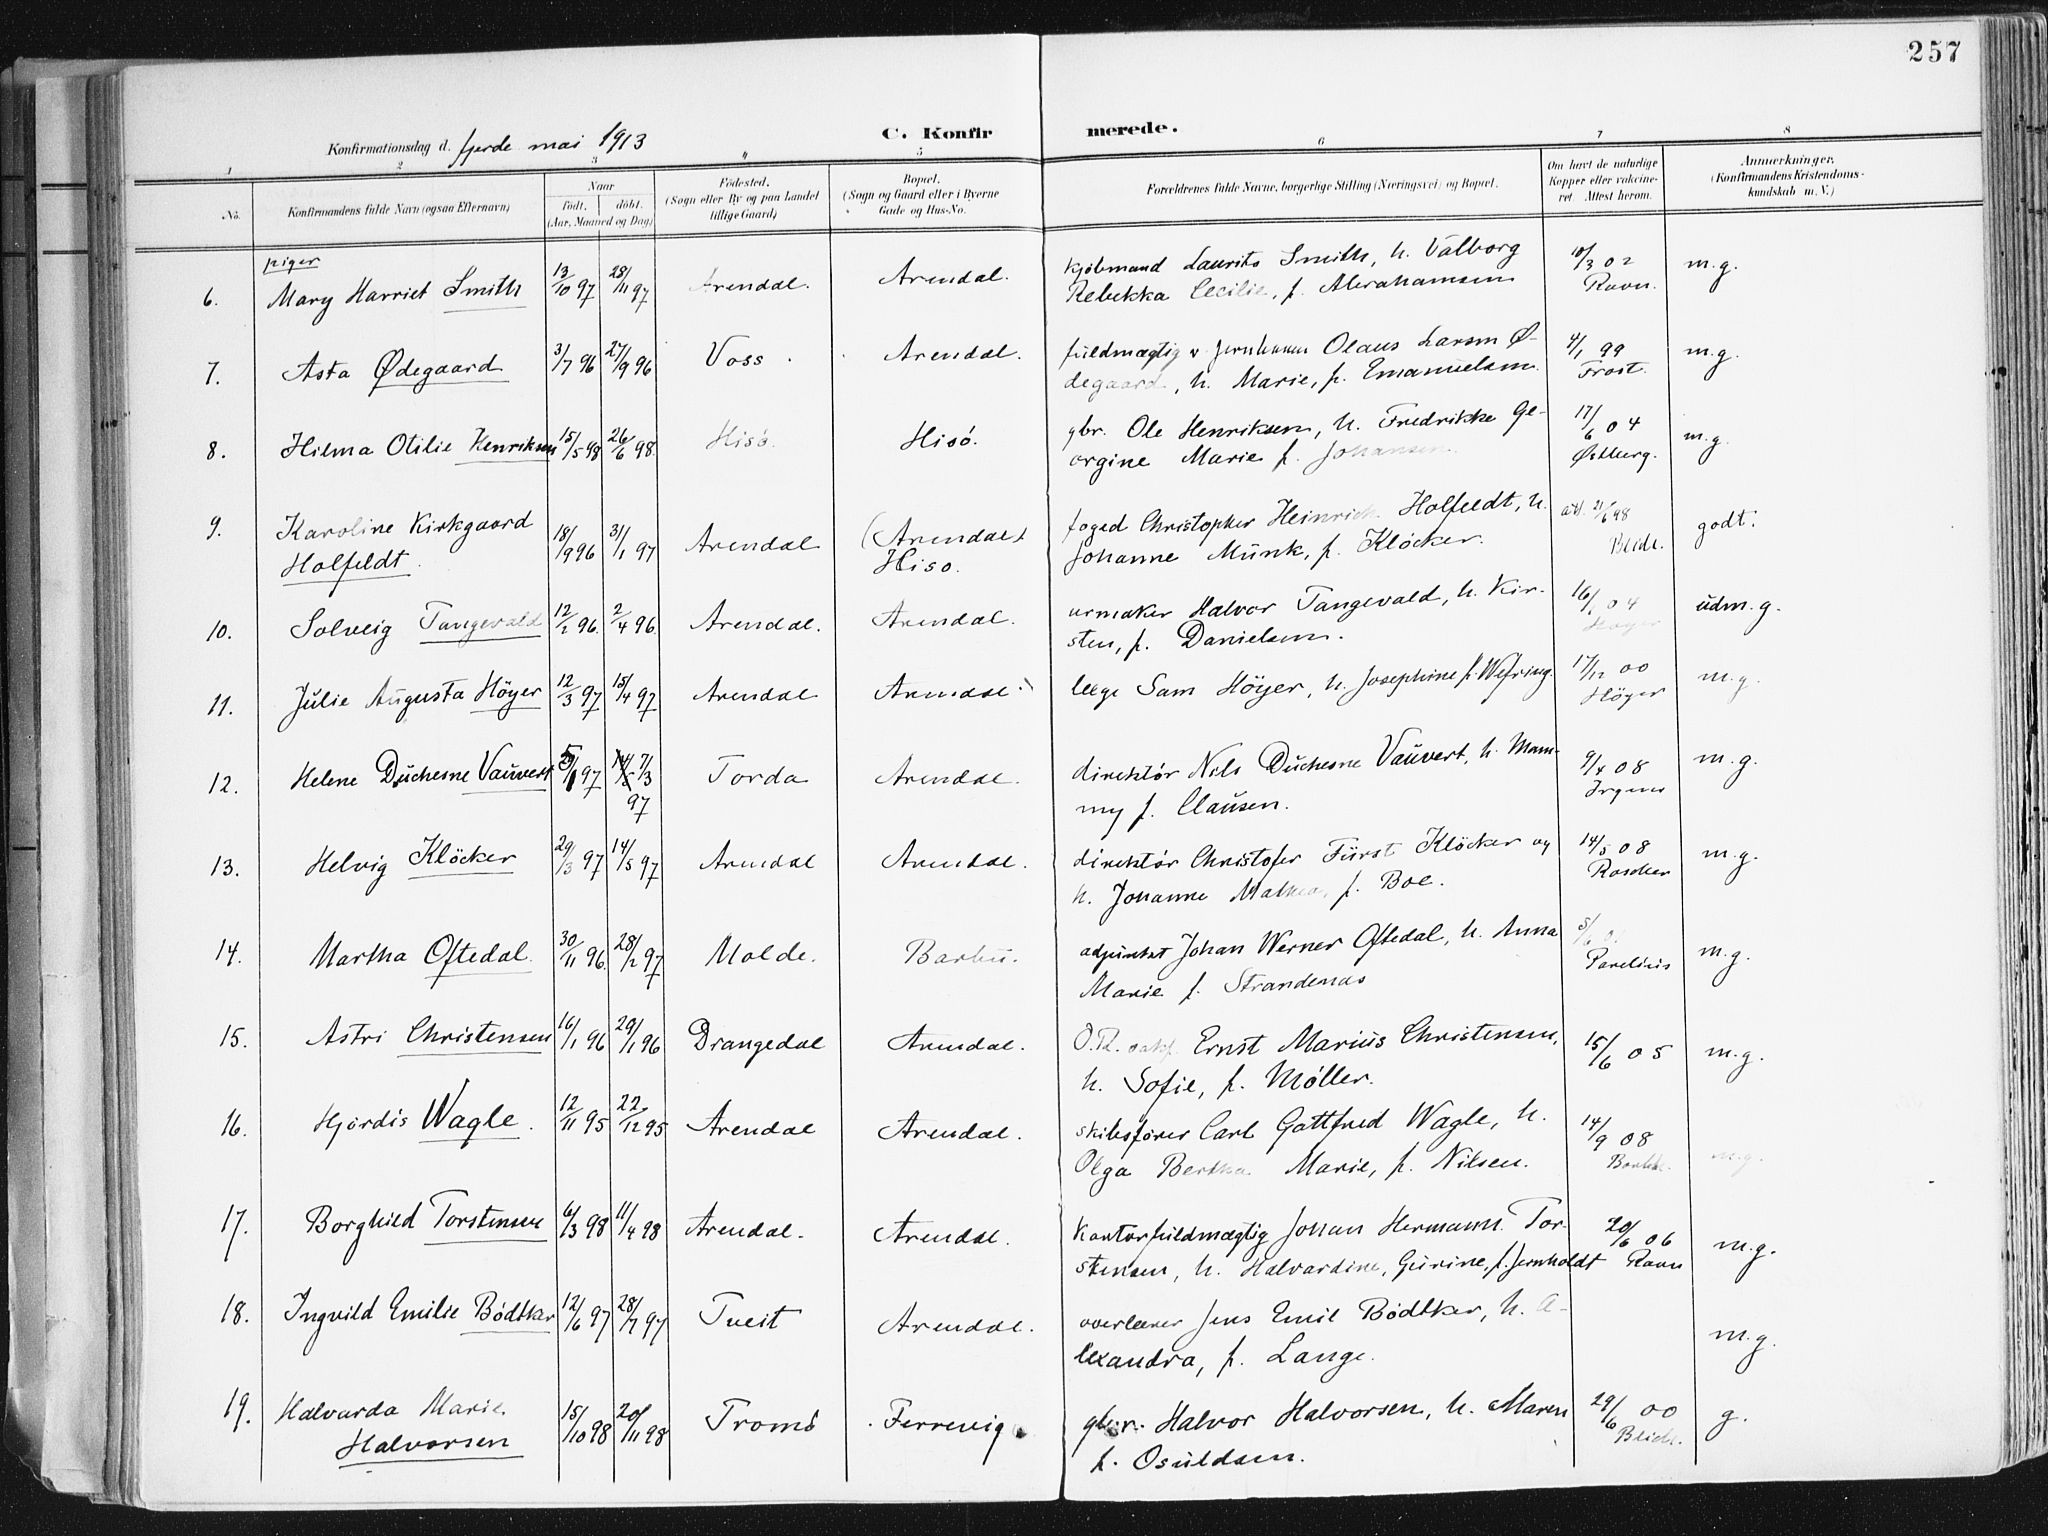 257
C. Konfirmerede.
Konfirmationsdag d. fjerde mai 1913
1 2 3 4 5 6 7 8
No. Konfirmandens fulde Navn (ogsaa Efternavn) Naar født. døbt. (Aar, Maaned og Dag) Fødested. (Sogn eller By og paa Landet tillige Gaard) Bopæl. (Sogn og Gaard eller i Byerne Gade og Hus-No. Forældrenes fulde Navne, borgerlige Stilling (Næringsvei) og Bopæl. Om havt de naturlige Kopper eller vakcineret. Attest herom. Anmærkninger. (Konfirmandens Kristendomskundskab m. V.)
piger
6. Mary Harriet Smith 13/10 97 28/11 97 Arendal. Arendal. kjøbmand Laurits Smith, h. Valborg 10/3 02 m.g.
Rebekka Cecilie, f. Abrahamsen Ravn.
7. Asta Ødegaard 3/7 96 27/9 96 Voss. Arendal. fuldmægtig v. Olaus Larsen Ø- 4/1 99 m.g.
degaard, h. Marie, f. Emanuelsen. Frost.
8. Hilma Otilie Henriksen 15/5 98 26/6 98. Hisö. Hisö. gbr. Ole Henriksen, h. Fredrikke Ge- 17/6 04 m.g.
orgine Marie f. Johansen. Østberg.
9. Karoline Kirkgaard 18/9 96 31/1 97 Arendal (Arendal) foged Christopher Heinrich Holfeldt, h. 21/6 98 godt.
Holfeldt. Hisö. Johanne Munk, f. Klöcker. Blich.
10. Solveig Tangevald 12/2 96. 2/4 96. Arendal. Arendal. urmaker Halvor Tangevald, h. Kir- 04 udm.g.
sten, f. Danielsen. Høyer
11. Julie Augusta Höyer 12/3 97 15/4 97 Arendal Arendal. læge Sam Höyer, h. Josephine f. Wefring. 17/12 00 m.g.
Höyer
12. Helene Duchesne Vauvert 5/1 97 7/3 97 Torda Arendal. direktör Nils Duchesne Vauvert, h. Mam- 9/4 08 m.g.
my f. Clausen. Irgens
13. Helvig Klöcker 29/3 97 14/5 97 Arendal Arendal. direktör Christofer Fürst Klöcker og 14/5 08 m.g.
h. Johanne Mathea, f. Boe. Roscher
14. Martha Oftedal. 30/11 96. 28/2 97 Molde. Barbu. adjunkt Johan Werner Oftedal, h. Anna m.g.
Marie f. Strandenæs Parelius
15. Astri Christensen 16/1 96 29/1 96 Drangedal Arendal. Ernst Marius Christensen, 15/6 05 m.g.
h. Sofie, f. Møller.
16. Hjördis Wagle. 12/11 95 22/12 95 Arendal Arendal. skibsfører Carl Gottfred Wagle, h. 14/9 08 m.g.
Olga Bertha Marie, f. Nilsen.
17. Borghild Torstensen 6/3 98 11/4 98 Arendal. Arendal. Kontorfuldmægtig Johan Hermann Tor- 20/6 06 m.g.
stensen, h. Halvardine, Gurine, f. Jernholdt Ravn
18. Ingvild Emilie Bødtker 12/6 97 28/7 97 Tveit Arendal. overlærer Jens Emil Bødtker, h. A- m.g.
lexandra, f. Lange.
19. Halvarda Marie 15/10 98 20/11 98 Tromö Færevig. gbr. Halvor Halvorsen, h. Maren 29/6 00 g.
Halvorsen f. Osuldsen. Blich.